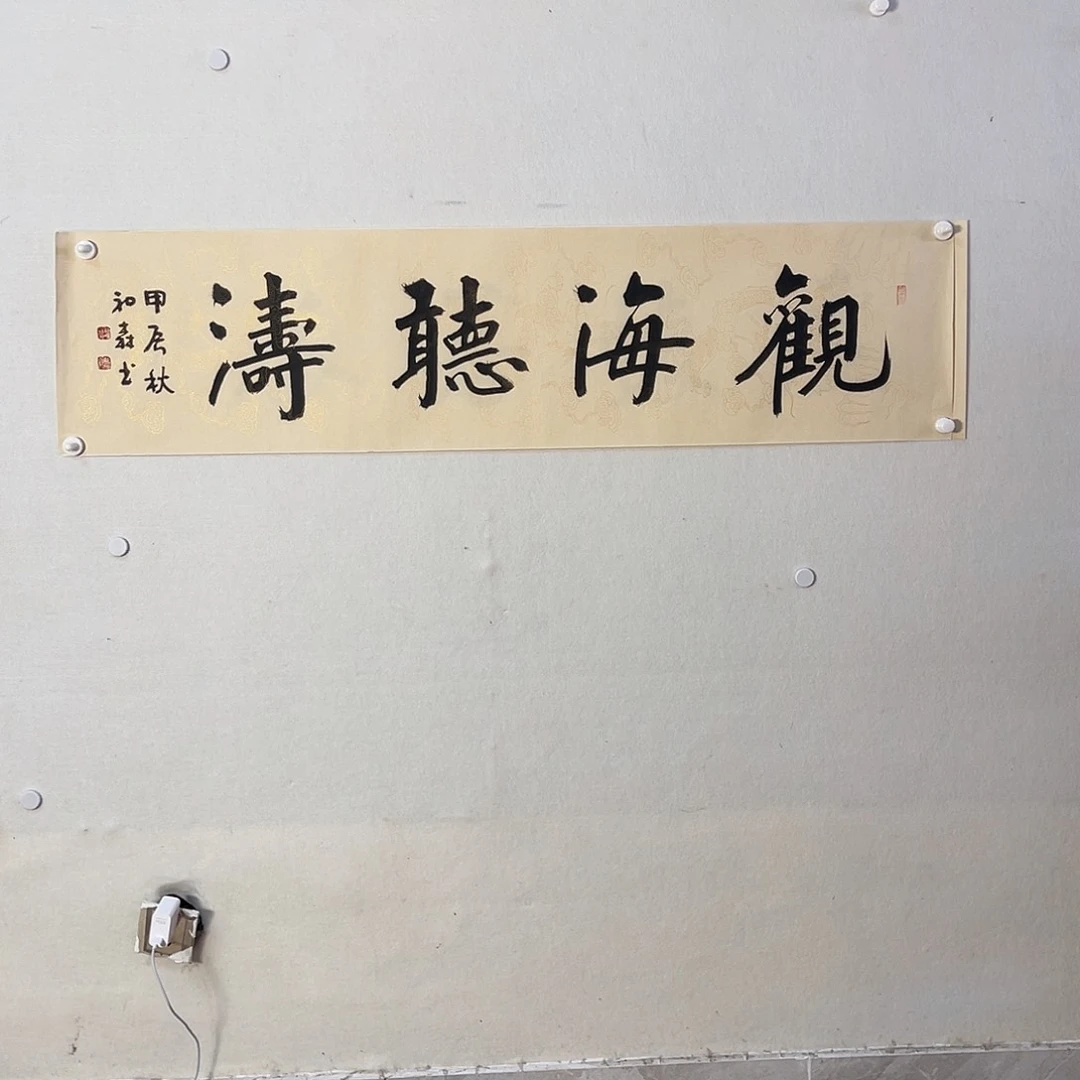 觀海聽濤
甲辰秋
和森书